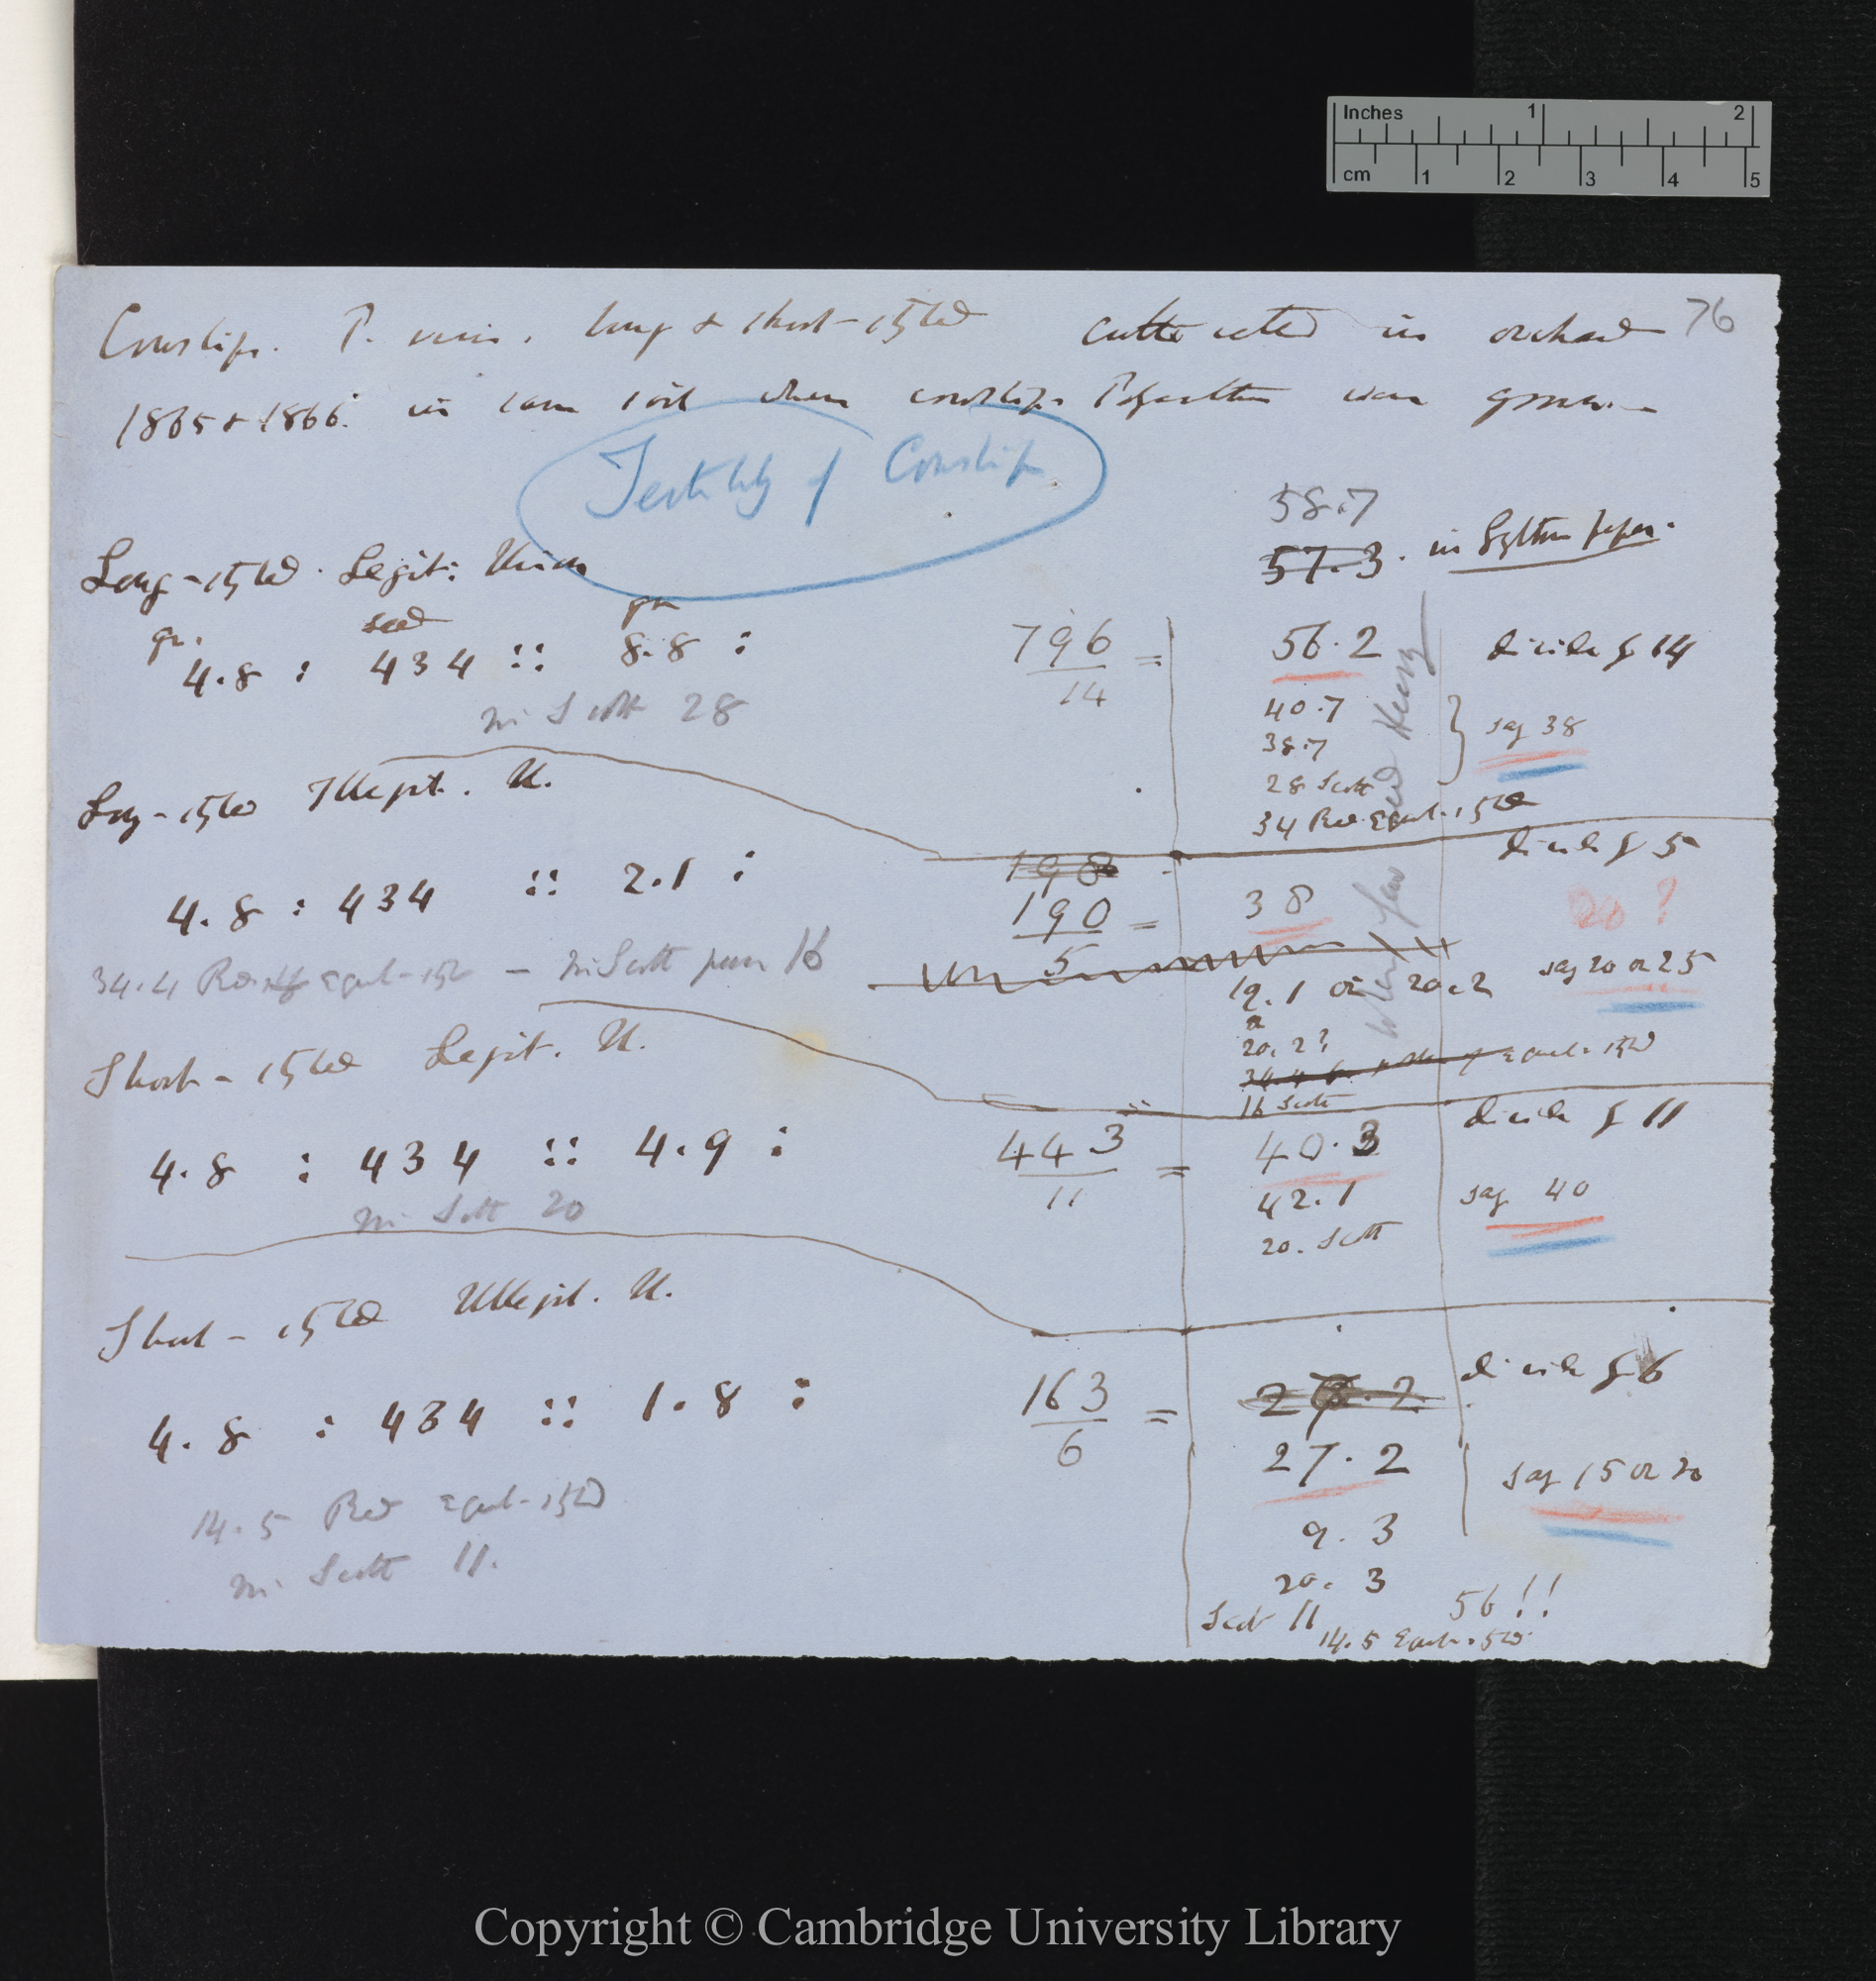 Inches 1 2
cm 1 2 3 4 5
76
Cowslip. P. veris. long & short-styled cultivated in orchard
1865 & 1866. in same soil where cowslip Polyanthus were grown.
Fertility of Cowslip
58.7
57.3. in Lythrum paper.
Long-styled. Legit: Union
gr. seed gr
4.8 : 434 :: 8.8 : 796 = 56.2 divide by 14
14
Mr Scott 28
40.7
38.7 say 38
28 Scott
34 Red Equal-styled
Long-styled Illegit. U.
divide by 5
198
4.8 : 434 :: 2.1 : 190 = 38 20?
5
34.4 Red Equal-styled — Mr Scott 16
19.1 or 20.2 say 20 or 25
or
20.2?
34.4 Equal-styled
16 Scott
Short-styled Legit. U.
divide by 11
4.8 : 434 :: 4.9 : 443 = 40.3
11
Mr Scott 20
42.1 say 40
20. Scott
Short-styled Illegit. U.
divide by 6
4.8 : 434 :: 1.8 : 163 =
6
27.2
say 15 or 20
14.5 Red Equal-styled
9.3
Mr Scott 11.
20.3
Scott 11
56!!
14.5 Equal-styled
Copyright © Cambridge University Library